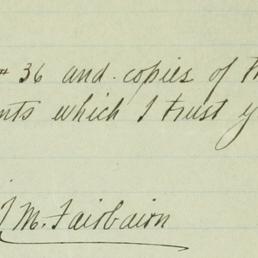 # 36 and copies of
which I trust
M. Fairbairn